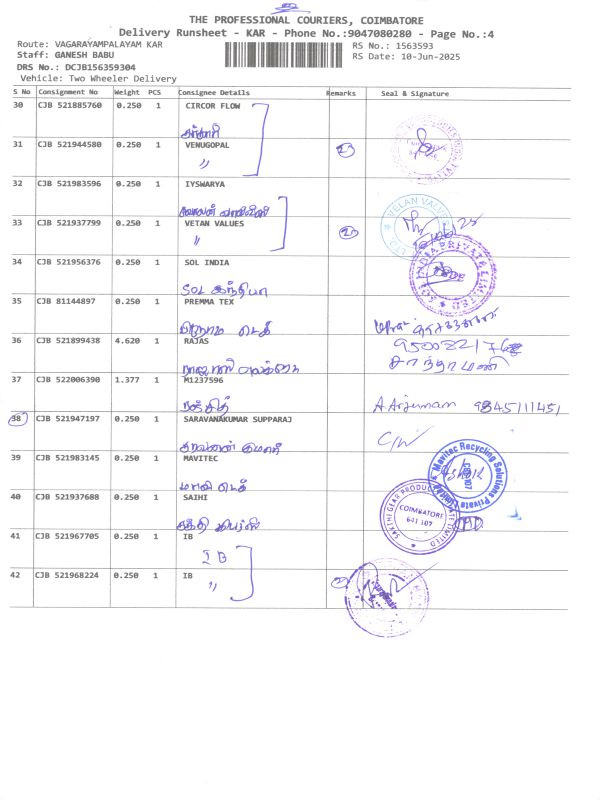 THE PROFESSIONAL COURIERS, COIMBATORE
Delivery Runsheet - KAR - Phone No.:9047080280 - Page No.:4
Route: VAGARAYAMPALAYAM KAR RS No.: 1563593
Staff: GANESH BABU RS Date: 10-Jun-2025
DRS No.: DCJB156359304
Vehicle: Two Wheeler Delivery
S No Consignment No Weight PCS Consignee Details Remarks Seal & Signature
30 CJB 521885760 0.250 1 CIRCOR FLOW
31 CJB 521944580 0.250 1 VENUGOPAL
"
32 CJB 521983596 0.250 1 IYSWARYA
33 CJB 521937799 0.250 1 VETAN VALUES
"
34 CJB 521956376 0.250 1 SOL INDIA
SOL இந்தியா
35 CJB 81144897 0.250 1 PREMMA TEX
36 CJB 521899438 4.620 1 RAJAS
சாந்தாமணி
37 CJB 522006390 1.377 1 M1237596
ரஞ்சித் A. Arjunan 9845111451
38 CJB 521947197 0.250 1 SARAVANAKUMAR SUPPARAJ
சரவணன் குமார் C/W
39 CJB 521983145 0.250 1 MAVITEC
மாவி டெக் Mavitec Recycling Solutions Private Limited
40 CJB 521937688 0.250 1 SAIHI
SAKTHI GEAR PRODUCTS COIMBATORE 641 107
41 CJB 521967705 0.250 1 IB
I B
42 CJB 521968224 0.250 1 IB
" 2